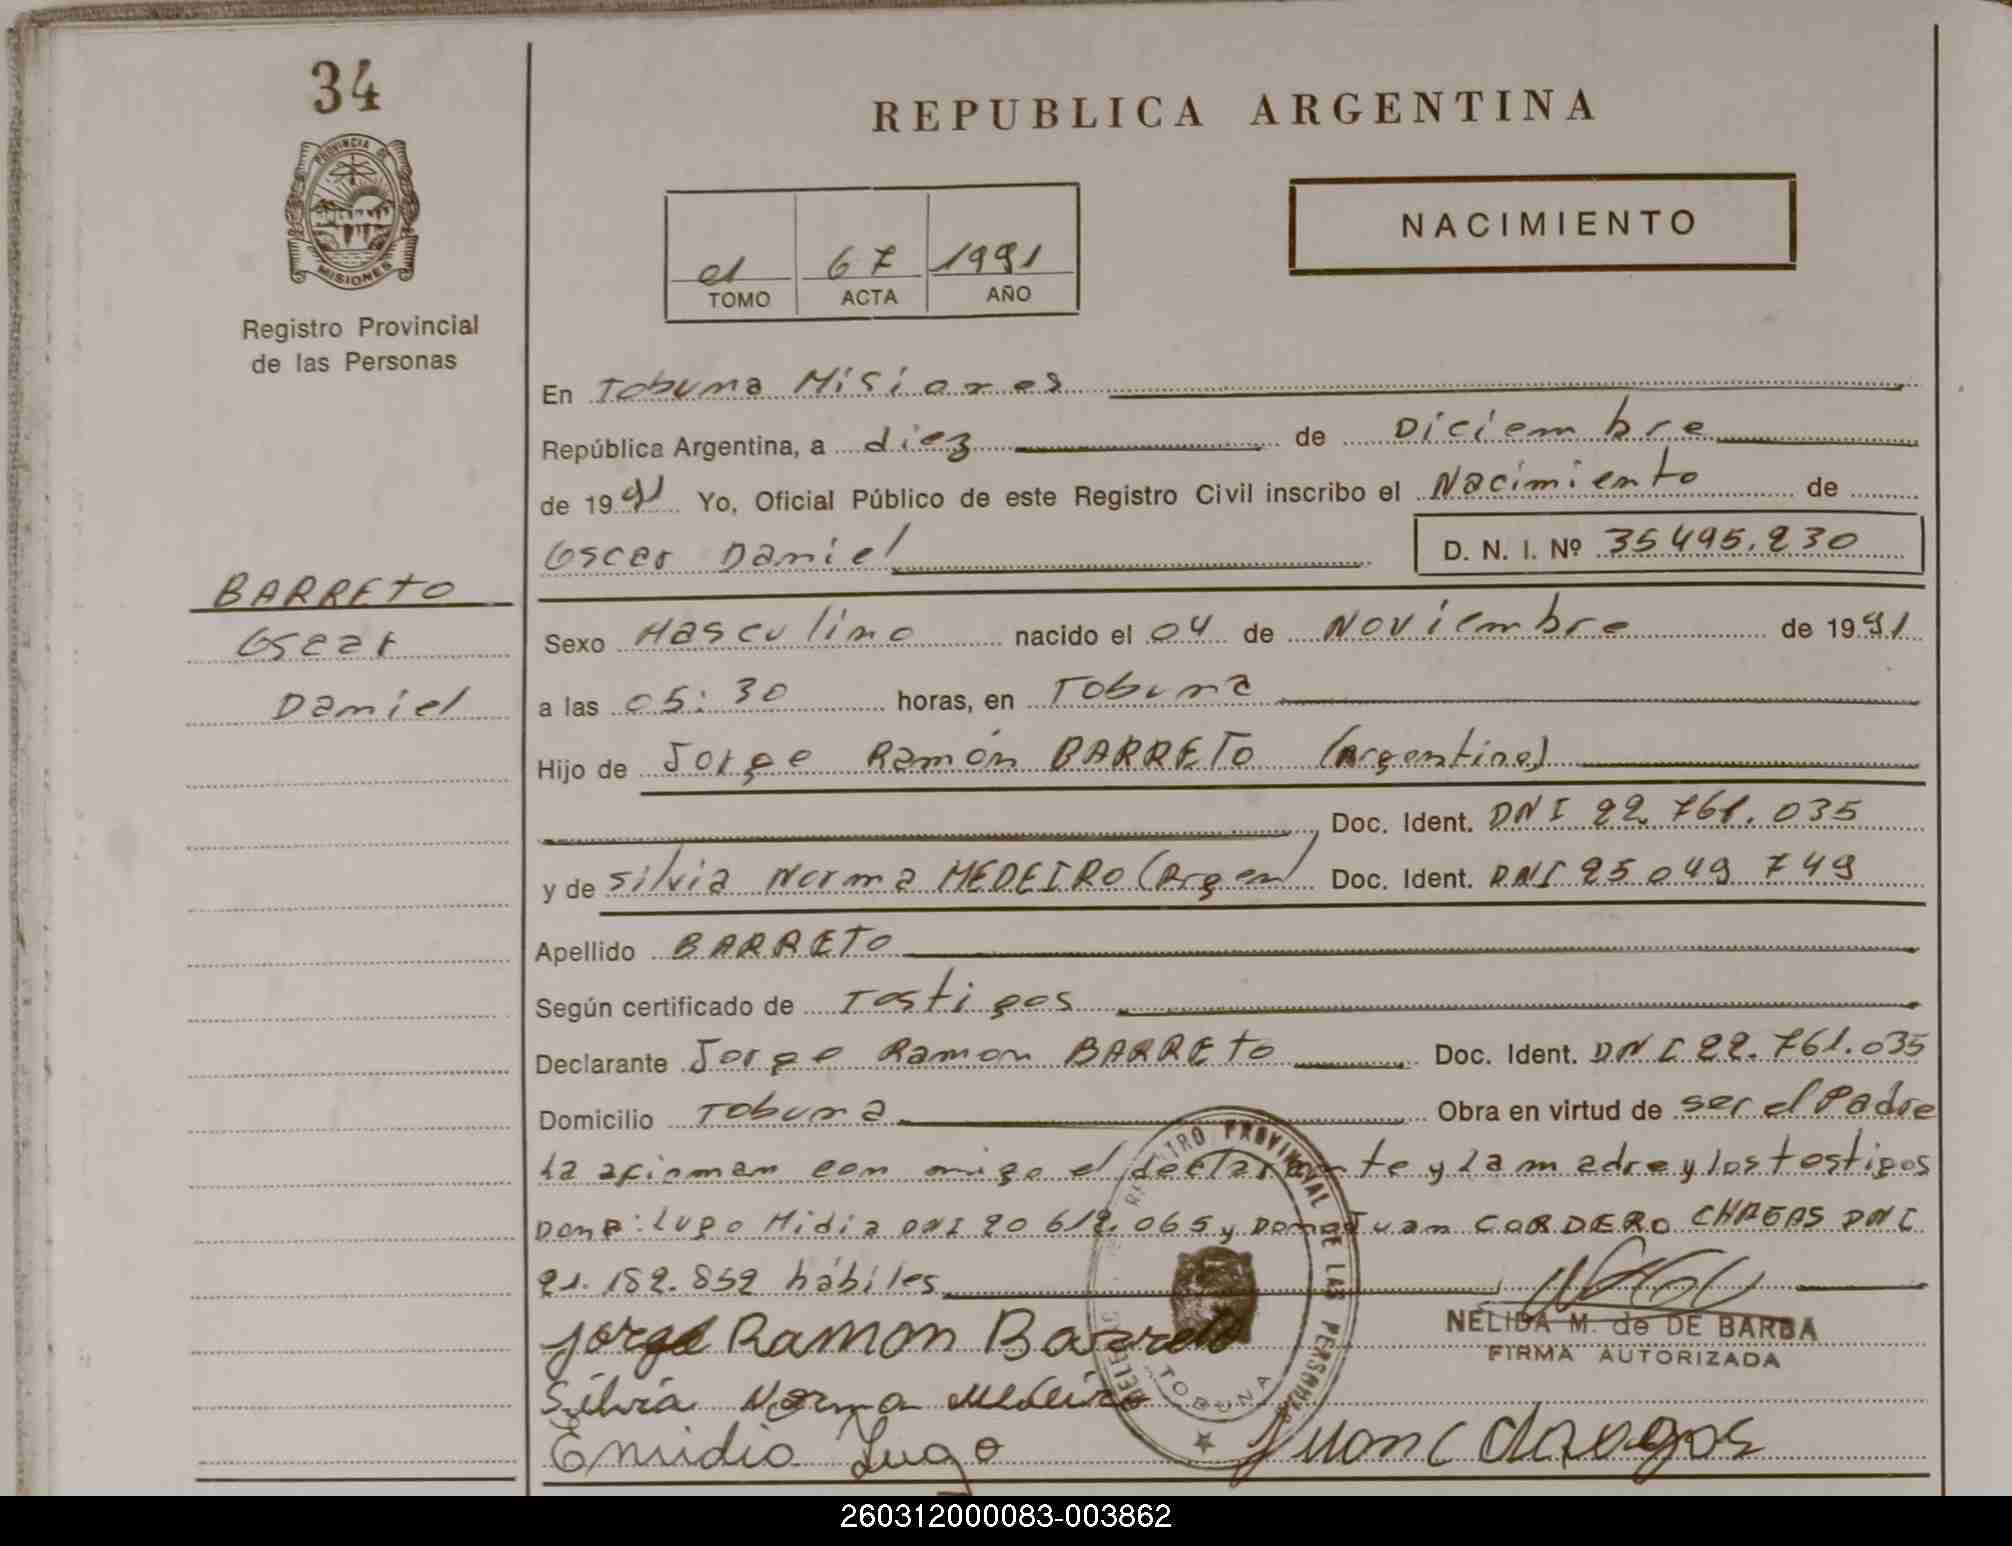 34
PROVINCIA DE
MISIONES
Registro Provincial
de las Personas
REPUBLICA ARGENTINA
NACIMIENTO
01 67 1991
TOMO ACTA AÑO
En Tobuna Misiones
República Argentina, a diez de Diciembre
de 1991 Yo, Oficial Público de este Registro Civil inscribo el Nacimiento de
Oscar Daniel D. N. I. Nº 35495.230
BARRETO
Oscar
Daniel
Sexo Masculino nacido el 04 de Noviembre de 1991
a las 05:30 horas, en Tobuna
Hijo de Jorge Ramón BARRETO (Argentino)
Doc. Ident. DNI 22.761.035
y de Silvia Norma MEDEIRO (Argen) Doc. Ident. DNI 25 049 749
Apellido BARRETO
Según certificado de Testigos
Declarante Jorge Ramon BARRETO Doc. Ident. DNI 22.761.035
Domicilio Tobuna Obra en virtud de ser el Padre
La afirman con migo el declarante y la madre y los testigos
Lugo DNI 20 612.065 y Juan CORDERO CHAGAS DNI
21.182.852 hábiles
Jorge Ramon Barreto
NELIDA M. de DE BARBA
FIRMA AUTORIZADA
Silvia Norma Medeiro
Emidio Lugo
Juan C Chagas
REGISTRO PROVINCIAL DE LAS PERSONAS
TOBUNA
260312000083-003862